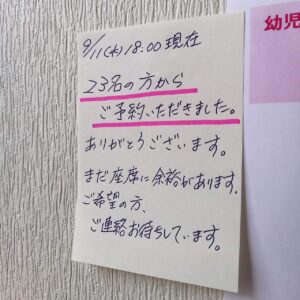 9/11(水)18:00現在
23名の方から
ご予約いただきました。
ありがとうございます。
まだ座席に余裕があります。
ご希望の方、
ご連絡お待ちしています。
幼児